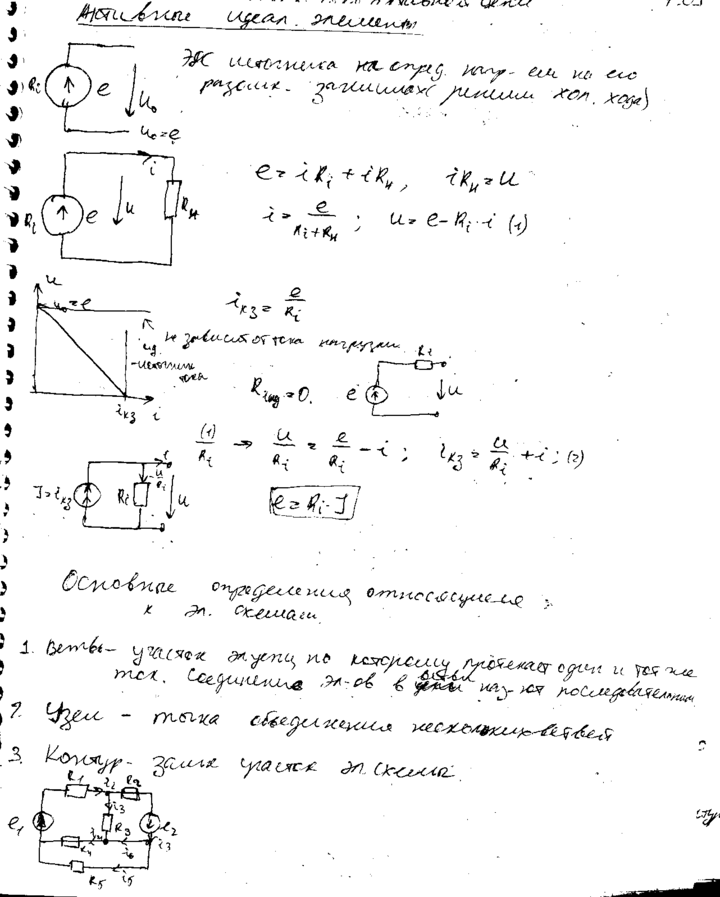 Активные идеал. элементы
ЭДС источника на опред. напр-ем на его
разомк. зажимах (режим хол. хода)
Ri e u₀
u₀ = e
e = iRi + iRн, iRн = u
i
Ri e u Rн
i = e/(Ri+Rн); u = e - Ri·i (1)
u
u₀ = e
iкз = e/Ri
не зависит от тока нагрузки
ид.
источник
тока
Ri
Riид = 0. e u
iкз i
(1)/Ri → u/Ri = e/Ri - i; iкз = u/Ri + i; (2)
i
u/Ri
J = iкз Ri u
e = Ri·J
Основные определения относящиеся
к эл. схемам
1. Ветвь - участок эл. цепи по которому протекает один и тот же
ток. Соединение эл-ов в ветви наз-ют последовательным
2. Узел - точка объединения нескольких ветвей
3. Контур - замк участок эл. схемы.
R1 i2 R2
i3
e1 R3 e2
R4 i4 i6 i3
R5 i5